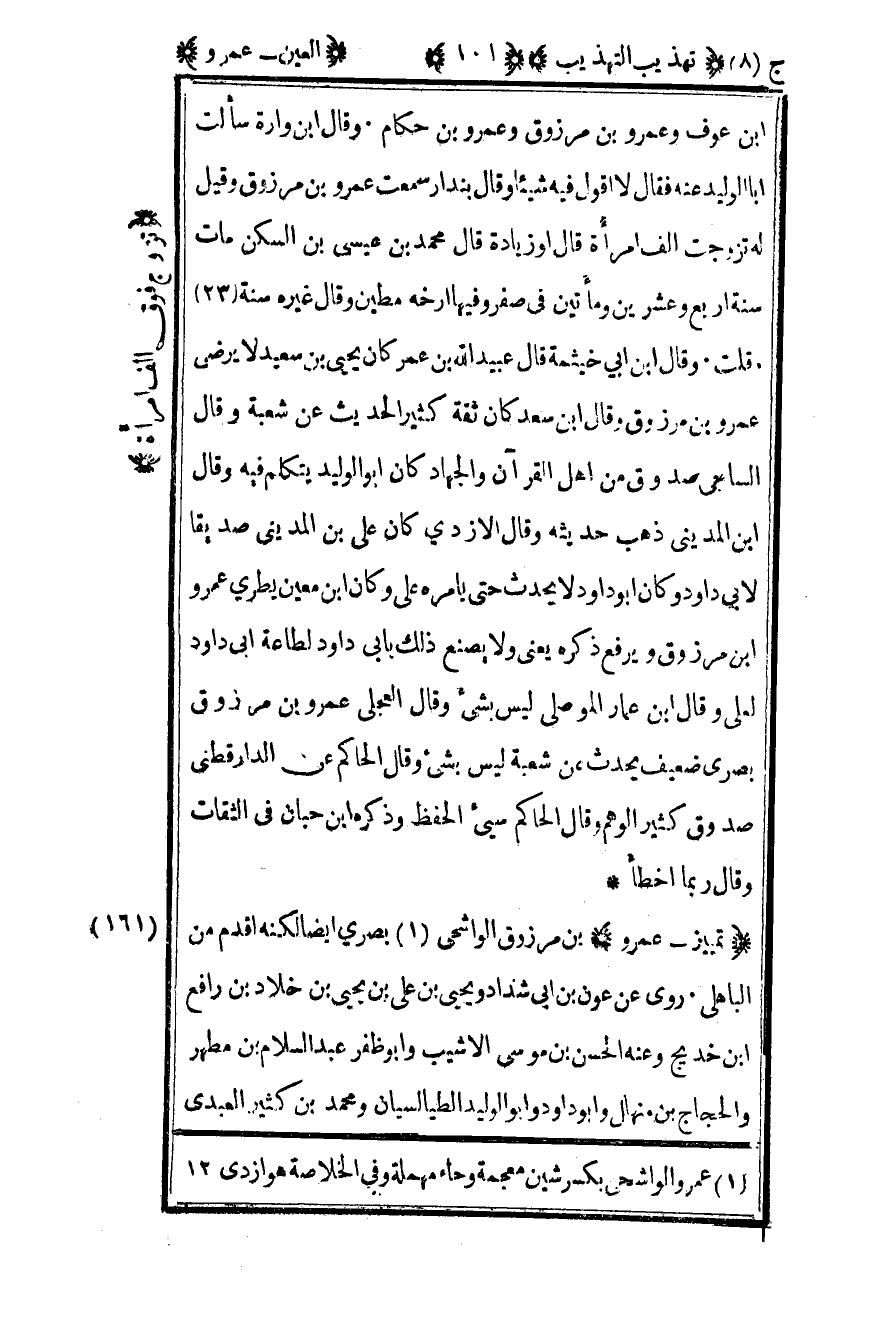 ج (٨) ﴿ تهذيب التهذيب ﴾ ﴿ ١٠١ ﴾ ﴿ العين ـ عمرو ﴾
ابن عوف وعمرو بن مرزوق وعمرو بن حكام ٠ وقال ابن وارة سألت
ابا الوليد عنه فقال لا اقول فيه شيئا وقال بندار سمعت عمرو بن مرزوق وقيل
له تزوجت الف امرأة قال او زيادة قال محمد بن عيسى بن السكن مات
سنة اربع وعشرين ومأتين فى صفر وفيها ارخه مطين وقال غيره سنة (٢٣)
٠ قلت ٠ وقال ابن ابي خيثمة قال عبيد الله بن عمر كان يحيى بن سعيد لا يرضى
عمرو بن مرزوق وقال ابن سعد كان ثقة كثير الحديث عن شعبة وقال
الساجى صدوق من اهل القرآن والجهاد كان ابو الوليد يتكلم فيه وقال
ابن المدينى ذهب حديثه وقال الازدي كان على بن المديني صديقا
لابي داود وكان ابو داود لا يحدث حتى يامره على وكان ابن معين يطري عمرو
ابن مرزوق ويرفع ذكره يعنى ولا يصنع ذلك بابى داود لطاعة ابى داود
لعلى وقال ابن عمار الموصلى ليس بشئ وقال العجلى عمرو بن مرزوق
بصرى ضعيف يحدث عن شعبة ليس بشئ وقال الحاكم عن الدارقطنى
صدوق كثير الوهم وقال الحاكم سيئ الحفظ وذكره ابن حبان فى الثقات
وقال ربما اخطأ *
﴿ تمييز ـ عمرو ﴾ بن مرزوق الواشحى (١) بصري ايضا لكنه اقدم من
الباهلى ٠ روى عن عون بن ابى شداد ويحيى بن على بن يحيى بن خلاد بن رافع
ابن خديج وعنه الحسن بن موسى الاشيب وابو ظفر عبد السلام بن مطهر
والحجاج بن منهال وابو داود وابو الوليد الطيالسيان ومحمد بن كثير العبدى
(١) عمرو الواشحى بكسر شين معجمة وحاء مهملة وفي الخلاصة هو ازدى ١٢
﴿ تزوج فوق الف امرأة ﴾
(١٦١)